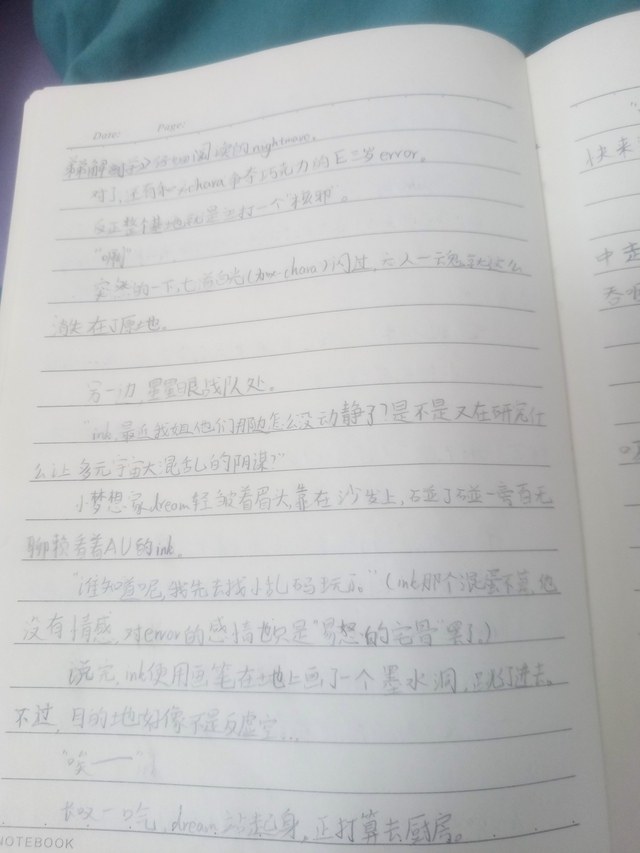 Date: Page:
给 阅读的nightmare。
对了，还有和chara争夺巧克力的巨三岁error。
反正整个基地就是主打一个“核邪”。
“唰”
突然的一下，七道白光(hhx chara)闪过，六人一 就这么
消失在了原地。
...
另一边，星星眼战队处。
“ink，最近我姐他们那边怎么没动静了？是不是又在研究什
么让多元宇宙大混乱的阴谋？”
小梦想家dream轻皱着眉头，靠在沙发上，碰了碰一旁百无
聊赖看着AU的ink。
“谁知道呢，我先去找小乱码玩了。”(ink那个混蛋不算，他
没有情感，对error的感情也只是“易怒的宅骨”罢了。)
说完，ink使用画笔在土地上画了一个墨水洞，跳了进去。
不过，目的地好像不是反虚空...
“唉——”
长叹一口气，dream站起身，正打算去厨房。
NOTEBOOK
快来
中走